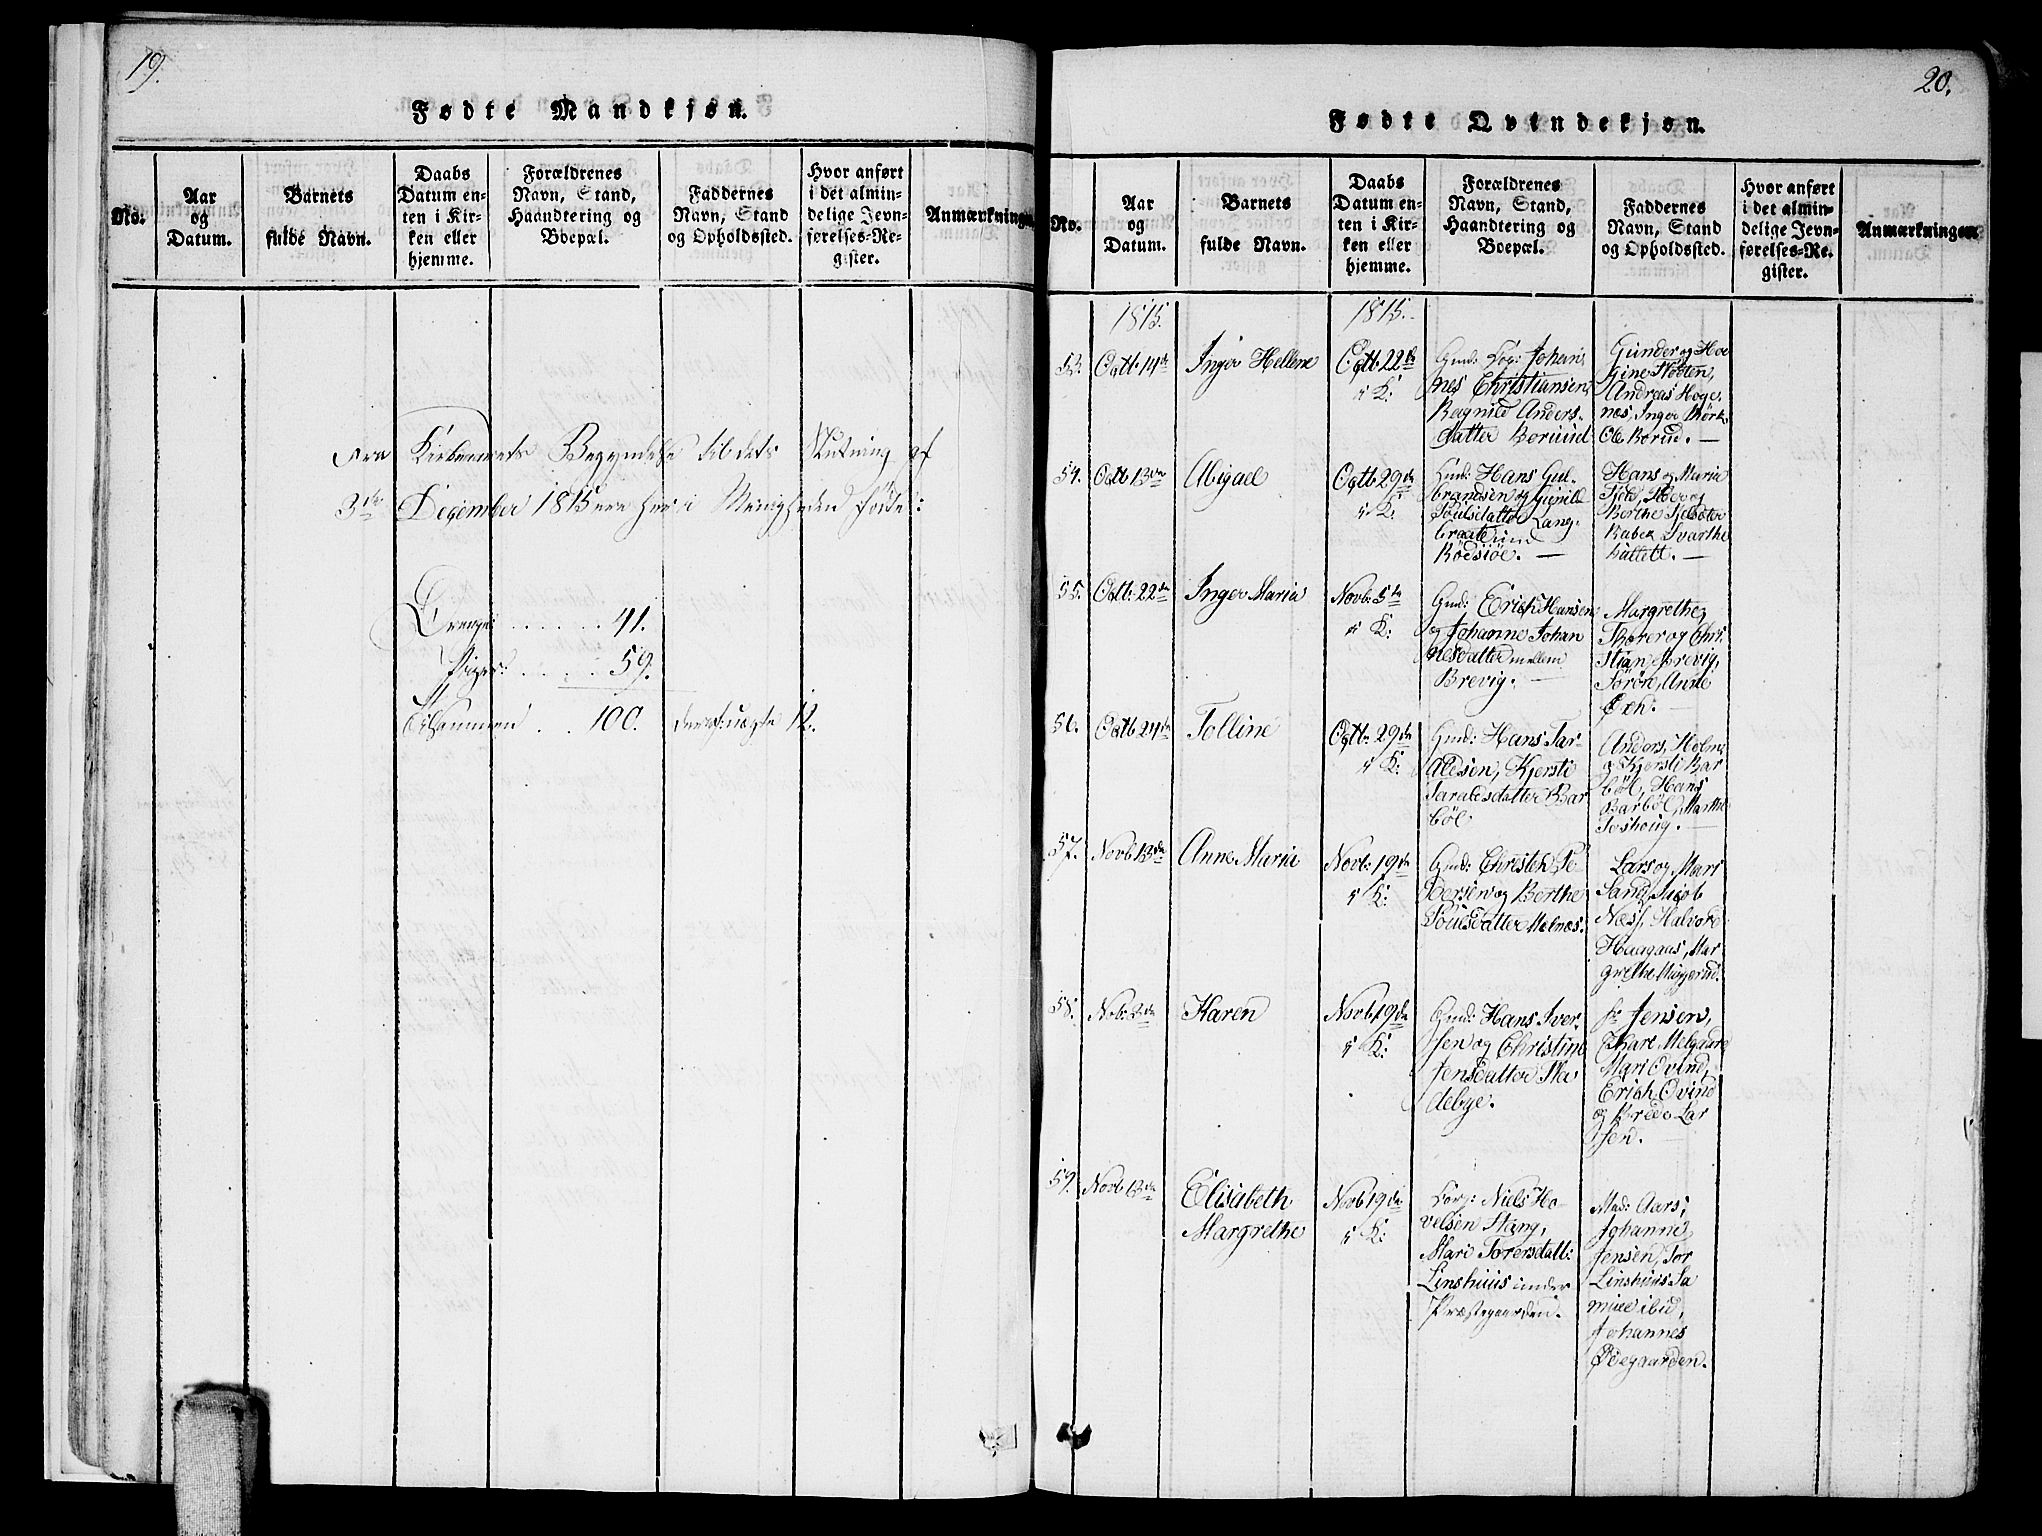 19.
Fødte Mandkjøn.
No.
Aar
og
Datum.
Barnets
fulde Navn.
Daabs
Datum en-
ten i Kir-
ken eller
hjemme.
Forældrenes
Navn, Stand,
Haandtering og
Boepæl.
Faddernes
Navn, Stand
og Opholdssted.
Hvor anført
i det almin-
delige Jevn-
førelses-Re-
gister.
Anmærkninger
Fra Kirkeaarets Begyndelse til dets Slutning
3die December 1815 ere her i Menigheden fødte:
Drenge ...... 41.
Piger ..... 59.
Tilsammen .. 100. deraf uægte 12.
20.
Fødte Qvindekjøn.
No.
Aar
og
Datum.
Barnets
fulde Navn.
Daabs
Datum en-
ten i Kir-
ken eller
hjemme.
Forældrenes
Navn, Stand,
Haandtering og
Boepæl.
Faddernes
Navn, Stand
og Opholdssted.
Hvor anført
i det almin-
delige Jevn-
førelses-Re-
gister.
Anmærkninger.
1815. 1815.
53. Octb: 14de Inger Hellene Octb: 22de
i K:
Gmd: Johan
nes Christiansen,
Ragnild Anders-
datter Borund
Gunder og
Andreas
næs, Inger
Ole Borud. —
54. Octb 13de Abigael Octb: 29de
i K:
Gmd: Hans Gul-
brandsen og Gunild
Poulsdatter Lang-
braate
Rödsiöe. —
Hans og Maria
Berthe
55. Octb: 22de Inger Maria Novb: 5te
i K:
Gmd: Erich Hansen
og Johanne Johan
nesdatter mellem
Brevig. —
Margrethe
og Chri-
stiane Brevig,
Anne
56. Octb 24de Tolline Octb: 29de
i K:
Gmd: Hans Tar-
aldsen, Kjersti
Taraldsdatter Bar
böl
Anders Holm
og Kjersti Bar
böl, Hans
Barböl, Marthe
57. Novb 13de Anne Maria Novb: 19de
i K:
Gmd: Christen Pe
dersen og Berthe
Poulsdatter Melnæs.
Lars og Mari
Sand, Jacob
Næss, Halvord
Haagaas, Mar
grethe
58. Novb: Karen Novb 19de
i K:
Gmd: Hans Iver-
sen og Christine
Jensdatter Sta
debye.
Jensen,
Melgaard
Mari Ovind,
Erich Ovind
og Lar
sen.
59. Novb 13de Elisabeth Novb 19de
Margrethe i K:
Corp: Niels Ho-
velsen Stang,
Mari Torersdatt:
Linshuus under
Præstegaarden.
Mad: Aars,
Johanne
Jensen, Tor
Linshuus
ibid,
Johannes
Ødegaarden.